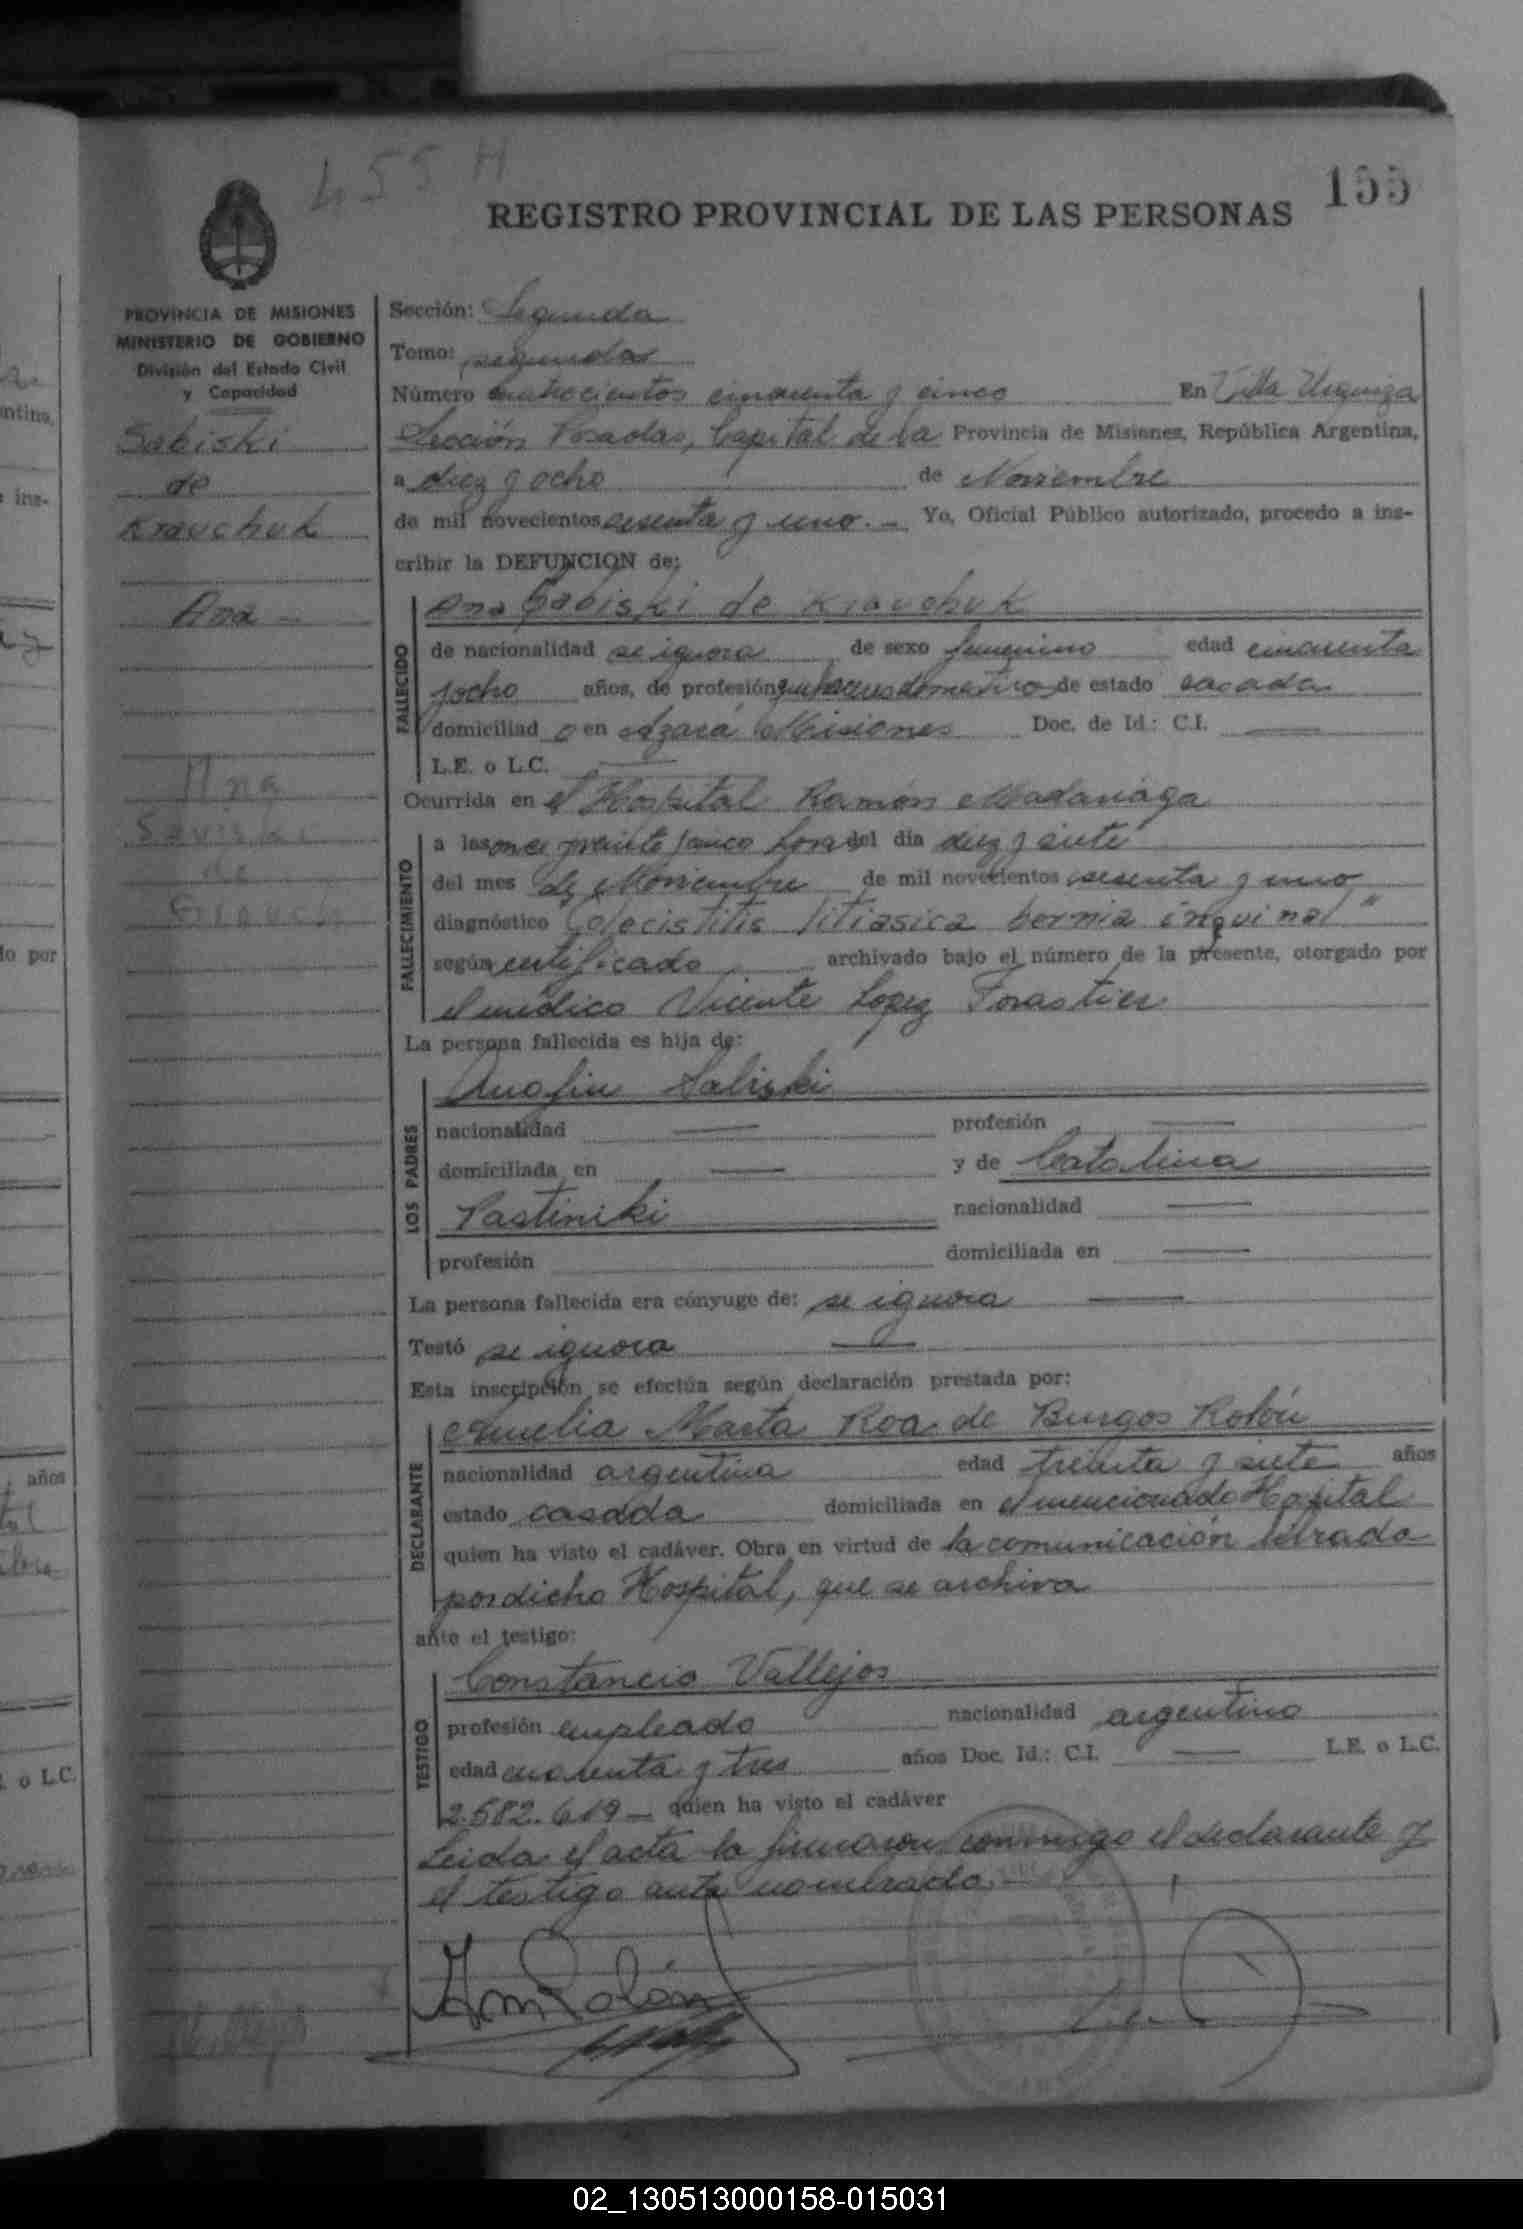 455 H
155
REGISTRO PROVINCIAL DE LAS PERSONAS
PROVINCIA DE MISIONES
MINISTERIO DE GOBIERNO
División del Estado Civil
y Capacidad
Sabiski
de
Kravchuk
Ana -
Ana
de
Sección: Segunda
Tomo: segundo
Número cuatrocientos cincuenta y cinco En Villa Urquiza
Sección Posadas, Capital de la Provincia de Misiones, República Argentina,
a diez y ocho de Noviembre
de mil novecientos sesenta y uno.- Yo, Oficial Público autorizado, procedo a ins-
cribir la DEFUNCION de:
Ana Sabiski de Kravchuk
FALLECIDO
de nacionalidad se ignora de sexo femenino edad cincuenta
y ocho años, de profesión quehaceres domesticos de estado casada
domiciliad o en Azara Misiones Doc. de Id.: C.I. —
L.E. o L.C. —
Ocurrida en el Hospital Ramón Madariaga
FALLECIMIENTO
a las once y veinte y cinco horas del día diez y siete
del mes de Noviembre de mil novecientos sesenta y uno
diagnóstico Colecistitis litiasica hernia inguinal"
según certificado archivado bajo el número de la presente, otorgado por
el médico Vicente Lopez Forastier
La persona fallecida es hija de:
LOS PADRES
Sabiski
nacionalidad — profesión —
domiciliada en — y de Catalina
Pastiniki nacionalidad —
profesión domiciliada en —
La persona fallecida era cónyuge de: se ignora —
Testó se ignora —
Esta inscripción se efectúa según declaración prestada por:
DECLARANTE
Amelia Marta Roa de Burgos Rolón
nacionalidad argentina edad treinta y siete años
estado casada domiciliada en el mencionado Hospital
quien ha visto el cadáver. Obra en virtud de la comunicación librada
por dicho Hospital, que se archiva
ante el testigo:
TESTIGO
Constancio Vallejos
profesión empleado nacionalidad argentino
edad cuarenta y tres años Doc. Id.: C.I. — L.E. o L.C.
2.582.619 — quien ha visto el cadáver
Leida el acta la firmaron conmigo el declarante y
el testigo ante nombrado.-
02_130513000158-015031